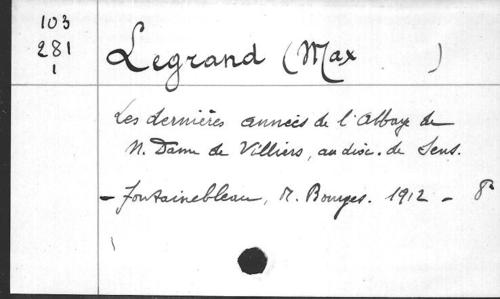 103
281
1
Legrand (Max )
Les dernières années de l'Abbaye de
N. Dame de Villiers, au dioc. de Sens.
- Fontainebleau, M. Bourges. 1912 - 8º